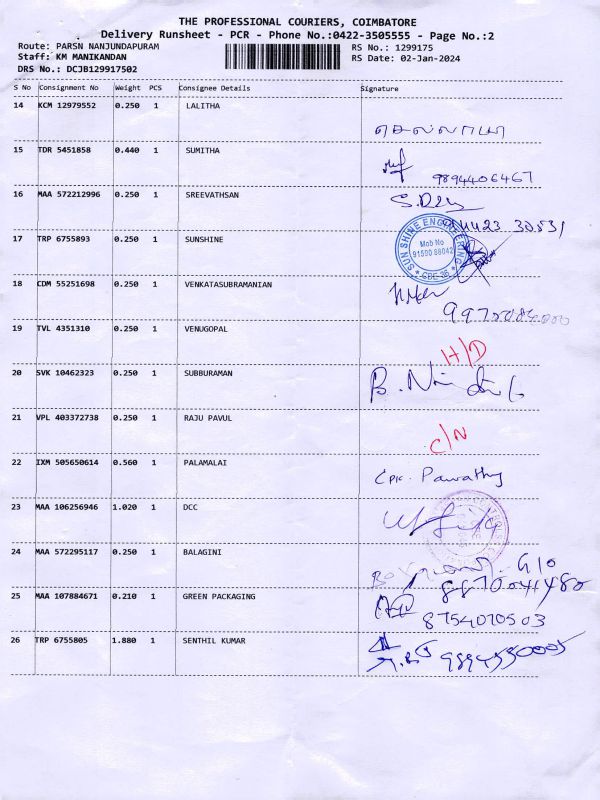 THE PROFESSIONAL COURIERS, COIMBATORE
Delivery Runsheet - PCR - Phone No.:0422-3505555 - Page No.:2
Route: PARSN NANJUNDAPURAM
RS No.: 1299175
Staff: KM MANIKANDAN
RS Date: 02-Jan-2024
DRS No.: DCJB129917502
S No Consignment No Weight PCS Consignee Details Signature
14 KCM 12979552 0.250 1 LALITHA
செல்லாயி
15 TDR 5451858 0.440 1 SUMITHA
9894406467
16 MAA 572212996 0.250 1 SREEVATHSAN
S.Dev
17 TRP 6755893 0.250 1 SUNSHINE
SUN SHINE ENGINEERING
Mob No
91500 88042
* CBE-36 *
18 CDM 55251698 0.250 1 VENKATASUBRAMANIAN
19 TVL 4351310 0.250 1 VENUGOPAL
H/D
20 SVK 10462323 0.250 1 SUBBURAMAN
21 VPL 403372738 0.250 1 RAJU PAVUL
C/N
22 IXM 505650614 0.560 1 PALAMALAI
Pawathy
23 MAA 106256946 1.020 1 DCC
24 MAA 572295117 0.250 1 BALAGINI
G10
8870041480
25 MAA 107884671 0.210 1 GREEN PACKAGING
8754070503
26 TRP 6755805 1.880 1 SENTHIL KUMAR
9894550005